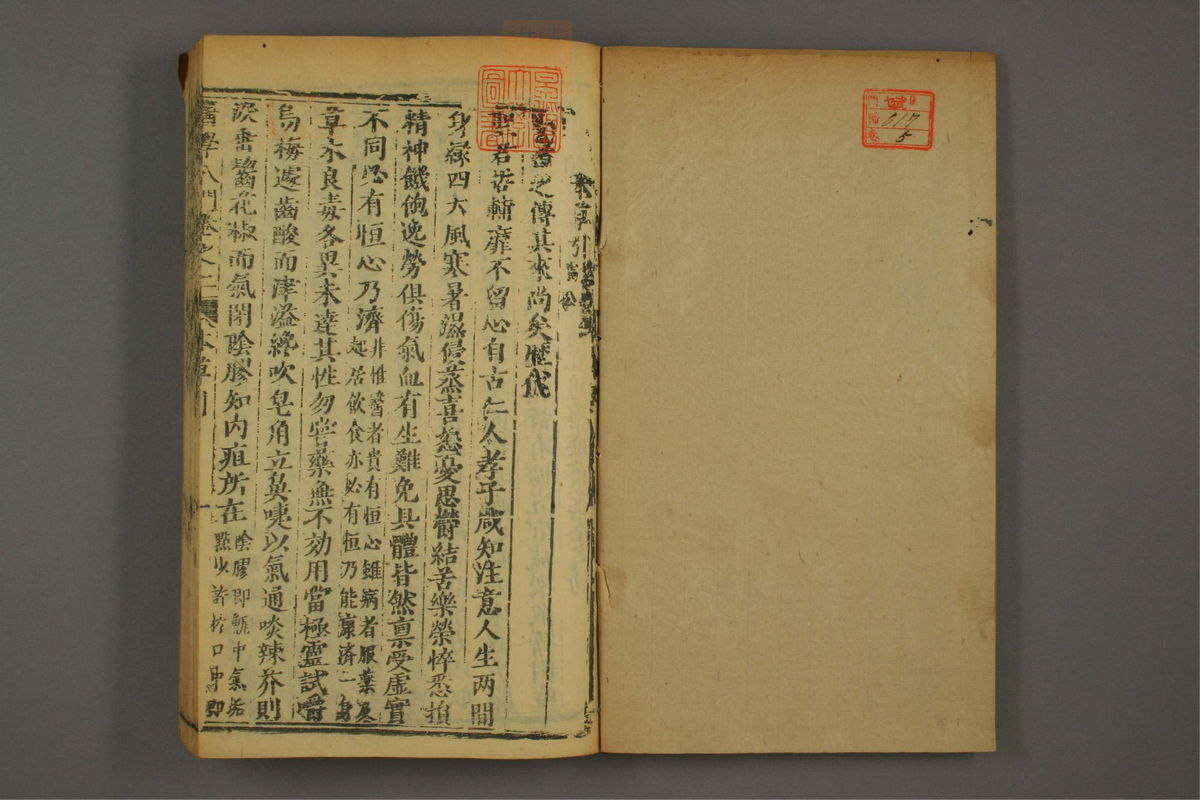 本草引
醫書之傳其來尚矣歷代
聖君若輔靡不留心自古仁人孝子咸知注意人生两間
身縁四大風寒暑濕侵蒸喜怒憂思鬱結苦樂榮悴悉損
精神饑飽逸勞俱傷氣血有生難免具體皆然禀受虛實
不同必有恒心乃濟非惟醫者貴有恒心雖病者服藥及
起居飲食亦必有恒乃能康濟一身
草木良毒各異未達其性勿嘗藥無不効用當極靈試嚼
烏梅遽齒酸而津溢纔吹皂角立莫嚏以氣通啖辣芥則
淚垂齧花椒而氣閉陰膠知内疽所在陰膠即甑中氣垢
點少許於口中即
醫學入門卷之二 本草引 一
門 號 617
卷 5